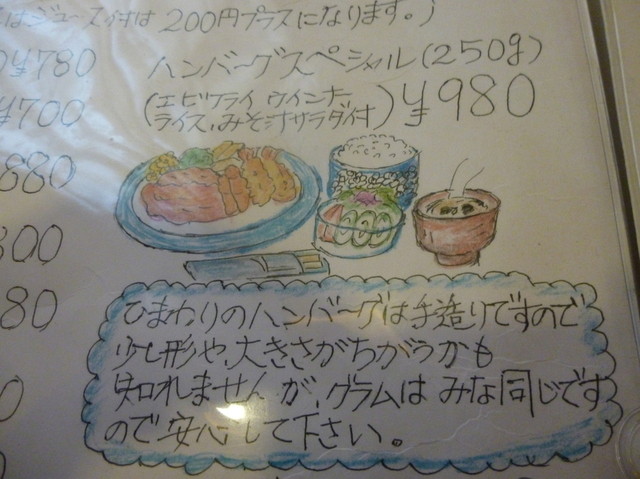 はジュース付は 200円プラスになります。)
¥780 ハンバーグスペシャル(250g)
¥700 (エビフライ ウインナー
ライス、みそ汁サラダ付) ¥980
880
300
80
0
ひまわりのハンバーグは手造りですので
少し形や、大きさがちがうかも
知れませんが、グラムは みな同じです
ので安心して下さい。